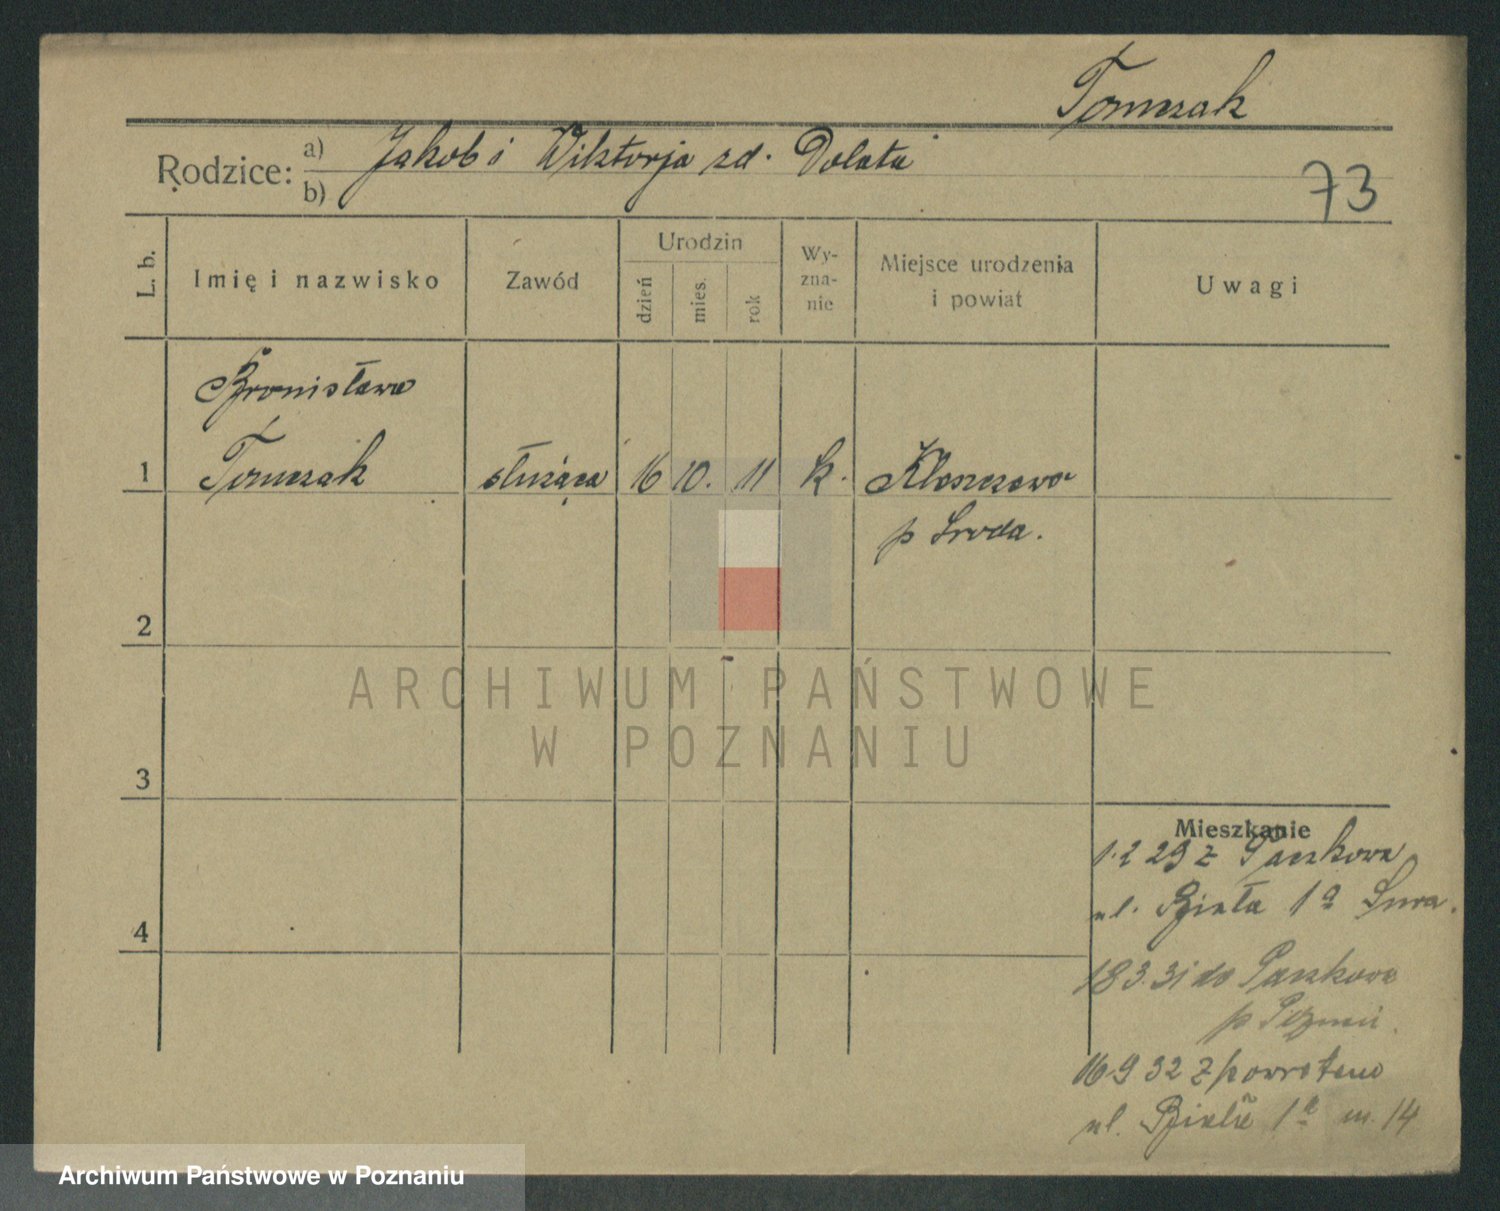 Tomczak
Rodzice: a) Jakób i Wiktorja zd. Dolata
b)
73
L. b.
Imię i nazwisko
Zawód
Urodzin
dzień
mies.
rok
Wy-
zna-
nie
Miejsce urodzenia
i powiat
Uwagi
Bronisława
1 Tomczak służąca 16 10. 11 k.
p Sroda.
2
ARCHIWUM PAŃSTWOWE
W POZNANIU
3
Mieszkanie
1.2 29 z Paczkowa
ul. Biała 1a
4
18 3.31 do Paczkowa
p
16.9 32 z powrotem
ul. 1a m. 14
Archiwum Państwowe w Poznaniu